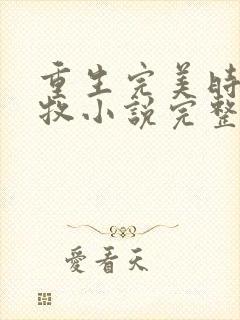 重生完美時
牧小說完整
愛看天